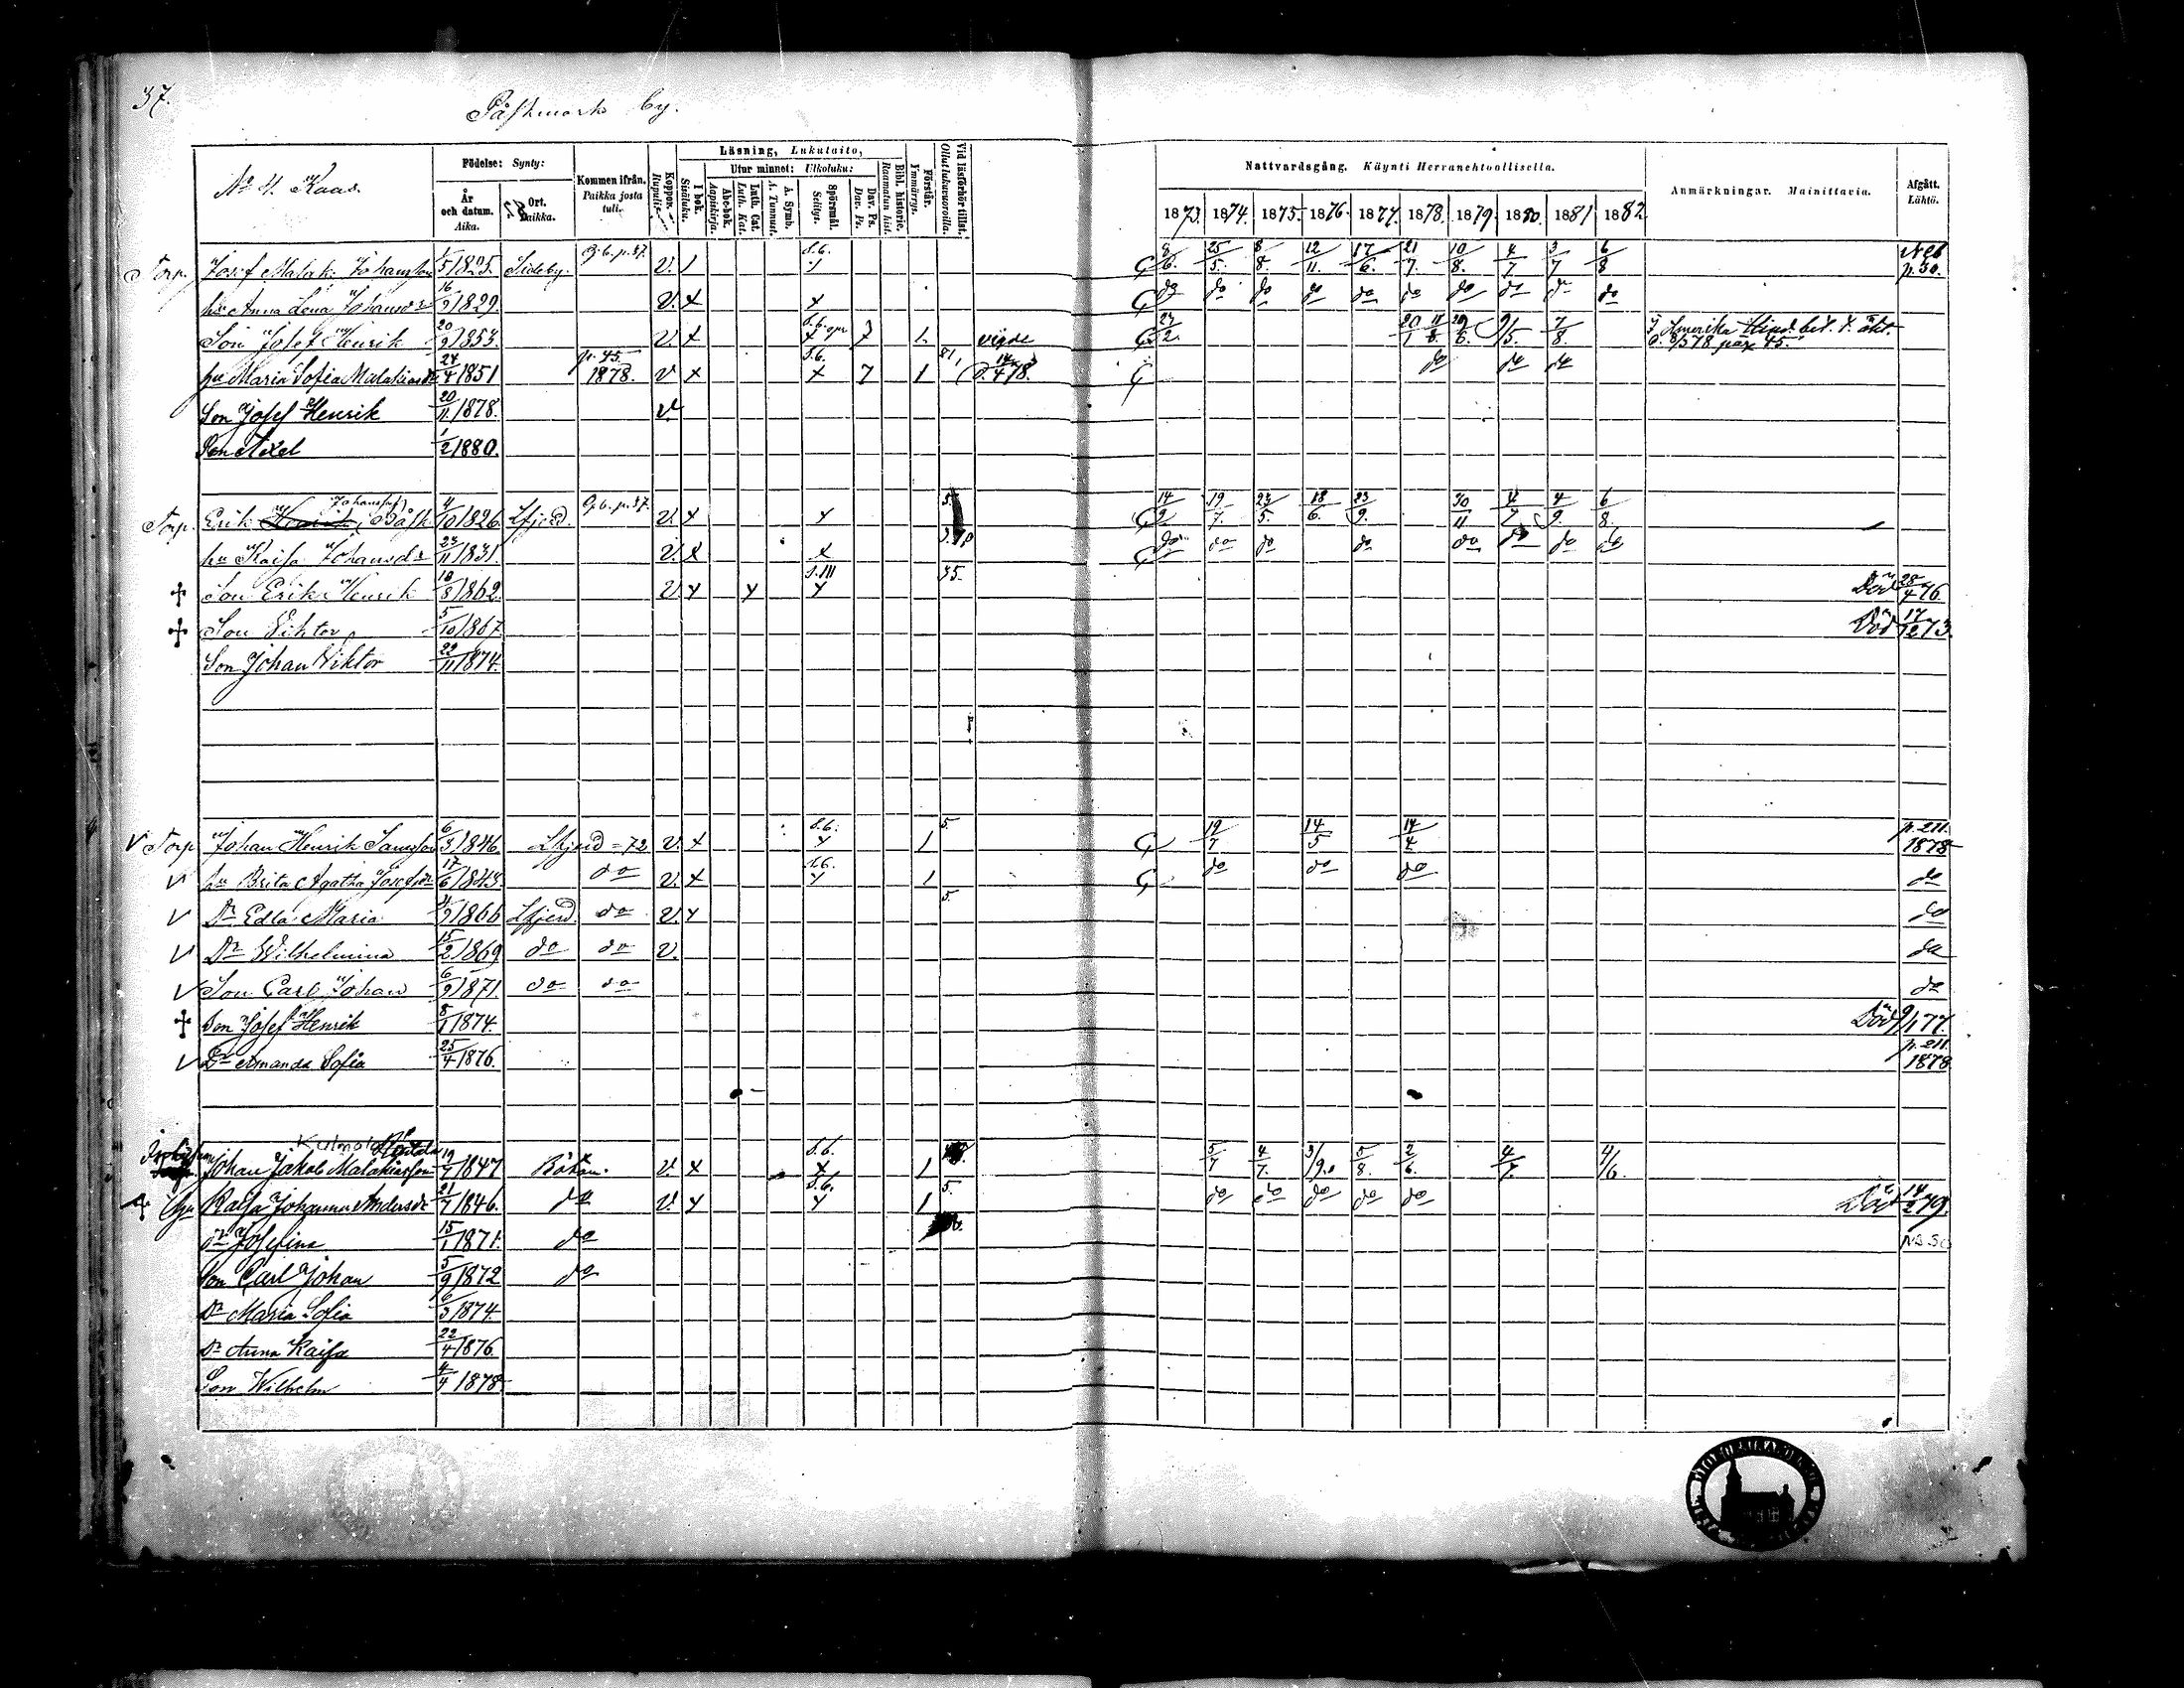 37.
Påskmark by.
No 4. Kaas.
Födelse: Synty:
År och datum. Aika.
Ort. Paikka.
Kommen ifrån. Paikka josta tuli.
Koppor. Rupulit.
Läsning, Lukutaito,
I bok. Sisäluku.
Utur minnet: Ulkoluku:
Abc-bok. Aapiskirja.
Luth. Cat. Luth. Kat.
A. Symb. A. Tunnust.
Spörsmål. Selitys.
Dav. Ps. Dav. Ps.
Bibl. historie. Raamatun hist.
Förstår. Ymmärrys.
Vid läsförhör tillst. Ollut lukuvuoroilla.
Nattvardsgång. Käynti Herranehtoollisella.
1873. 1874. 1875. 1876. 1877. 1878. 1879. 1880. 1881 1882.
Anmärkningar. Mainittavia.
Afgått. Lähtö.
Torp. Josef Malak. Johansson 5/1825. Sideby. G.b. p. 37. V. 1 S.b. 9/6. 25/5. 8/8. 12/11. 17/6. 21/7. 10/8. 4/7 3/7 6/8 p. 50.
hu Anna Lena Johansdr 16/9 1829. V. x x do do do do do do do do do do
Son Josef Henrik 20/9 1853. V. x S.b. x 7 1. vigde 27/2. 9/5. 7/8. I Amerika
hu Maria Sofia Malakiasdr 24/4 1851 p. 45. 1878. V x S.b. x 7 1 81, 14/4 78. do do do
Son Josef Henrik 20/11 1878. V
Son Axel 1/2 1880.
Torp. Erik Henrik Johansson Påsk 4/10 1826. Lfjerd. G.b. p. 37. V. x x 5. 14/9. 19/7. 23/5. 18/6. 23/9. 30/11 4/7 4/9. 6/8.
hu Kaisa Johansdr 23/11 1831. V. x x do do do do do do do do
Son Erik Henrik 18/8 1862. V x x S.III x 75. Död 28/4 76.
Son Viktor 5/10 1867. Död 17/12 73.
Son Johan Viktor 22/11 1874.
V Torp Johan Henrik Samsson 6/3 1846. Lfjerd = 72 V. x S.b. x 1 5. 19/7 14/5 14/4 p. 211. 1878
V hu Brita Agatha Josefsdr 17/6 1843. do V. x S.b. x 1 do do do do
V Dr Edla Maria 9 1866 Lfjerd. do V. x 5. do
V Dr Wilhelmina 15/2 1869 do do V. do
V Son Carl Johan 6/9 1871. do do do
Son Josef Henrik 8/1 1874. Död 9/1 77.
V Dr Amanda Sofia 25/4 1876. p. 211. 1878
Johan Jakob Malakiasson 19/7 1847 V. x S.b. x 1 5/7 4/7. 3/9. 5/8. 2/6. 4/7. 4/6.
hu Kaisa Johanna Andersdr 21/7 1846. do V. x S.b. x 1 5. do do do do do Död 14/2 79.
Dr Josefina 15/1 1871. do
Son Carl Johan 5/9 1872 do
Dr Maria Sofia 6/3 1874.
Dr Anna Kaisa 22/4 1876
Son Wilhelm 4/4 1878